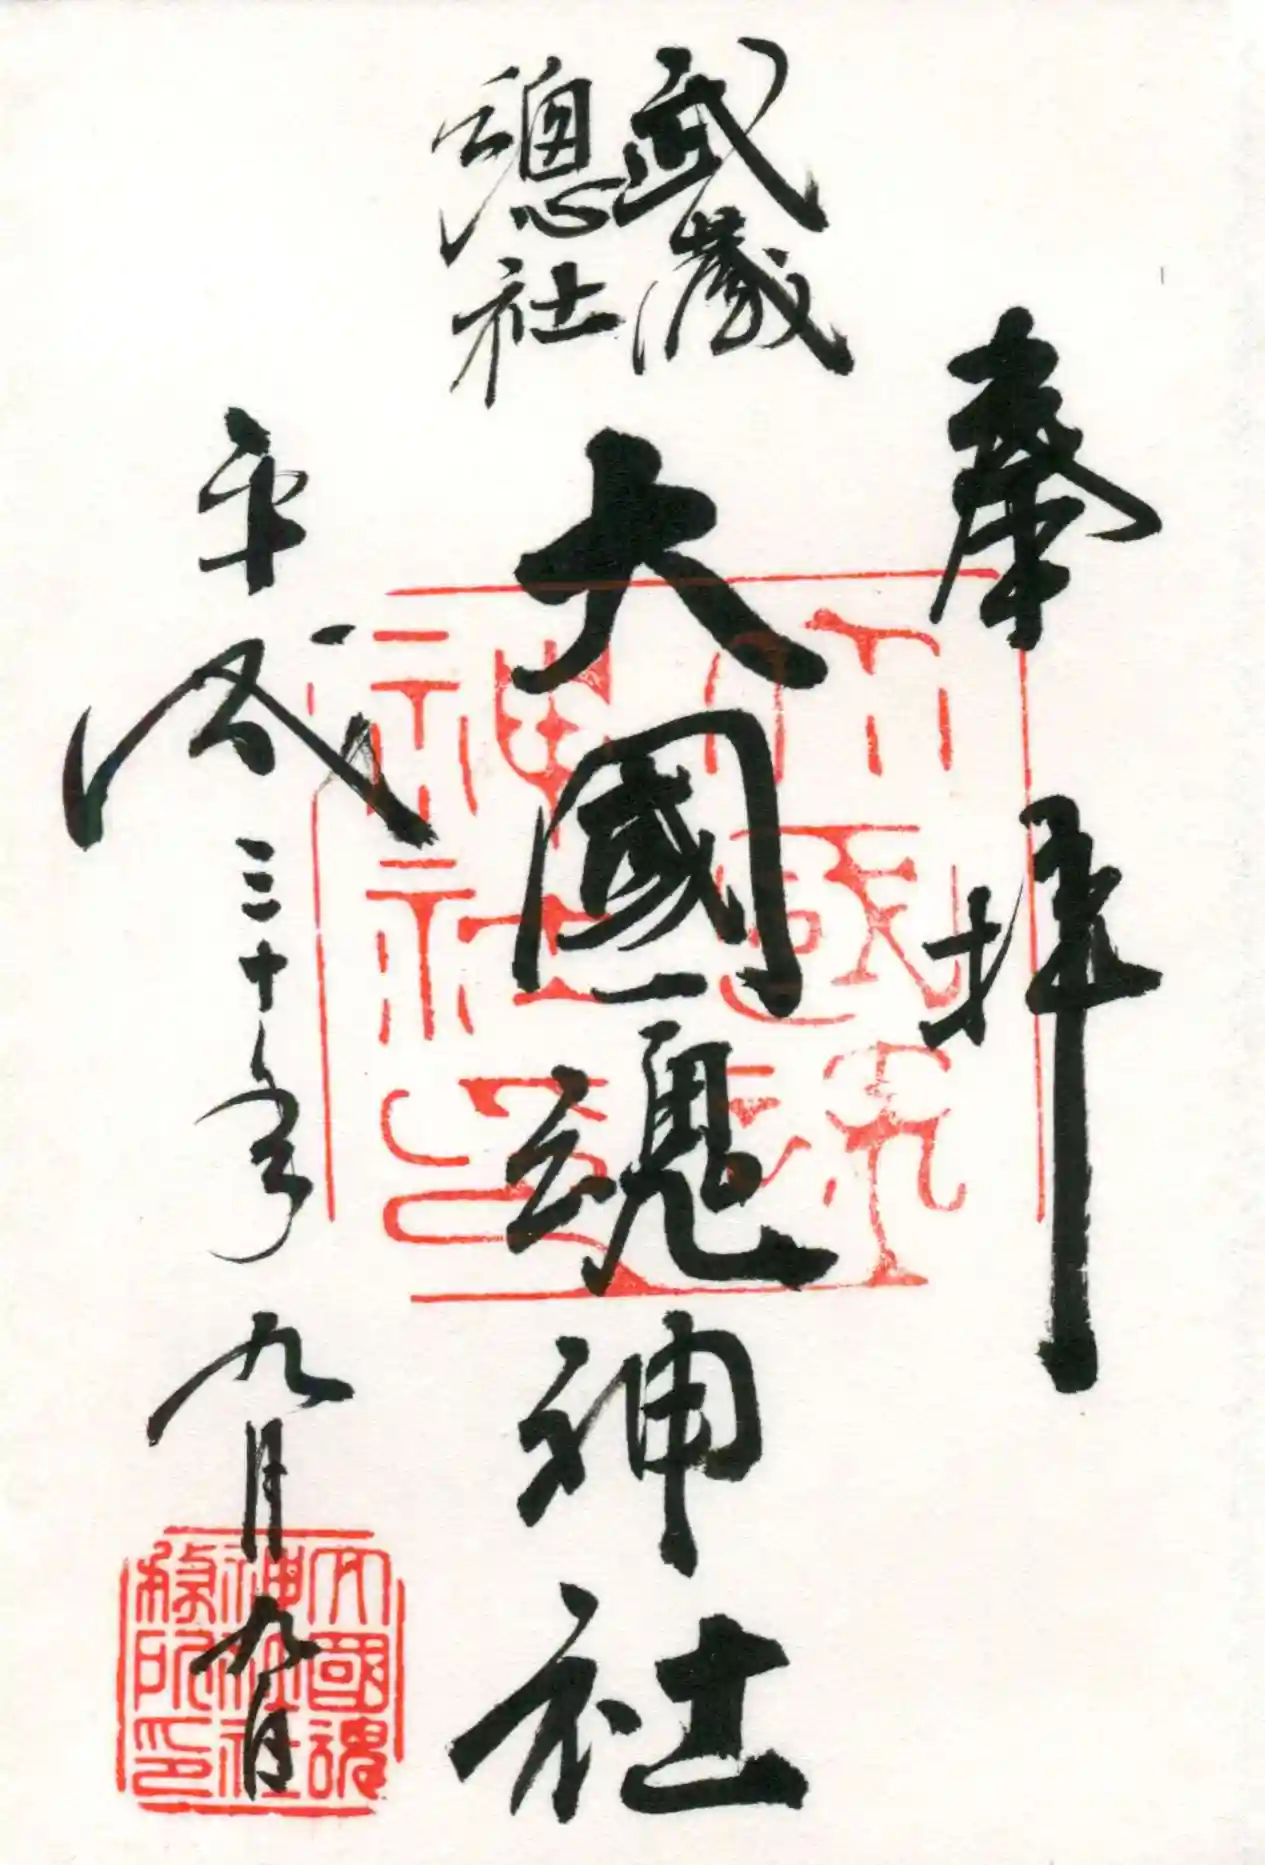 奉拝
武蔵
總社
大國魂神社
平成三十年九月九日
大國魂
神社社
務所印